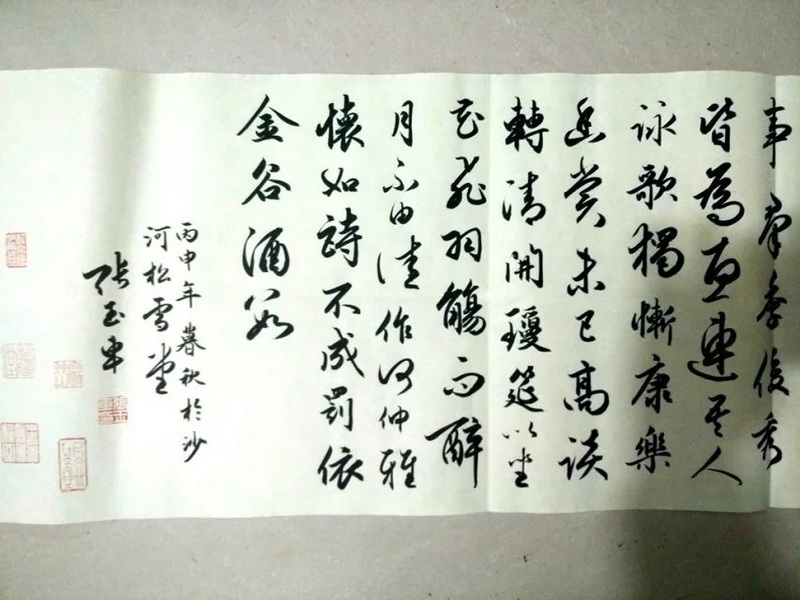 事群季俊秀
皆為惠連吾人
詠歌獨慚康樂
幽賞未已高談
轉清開瓊筵以坐
花飛羽觴而醉
月不有佳作何伸雅
懷如詩不成罰依
金谷酒數
丙申年暮秋於沙
河松雪堂
張玉